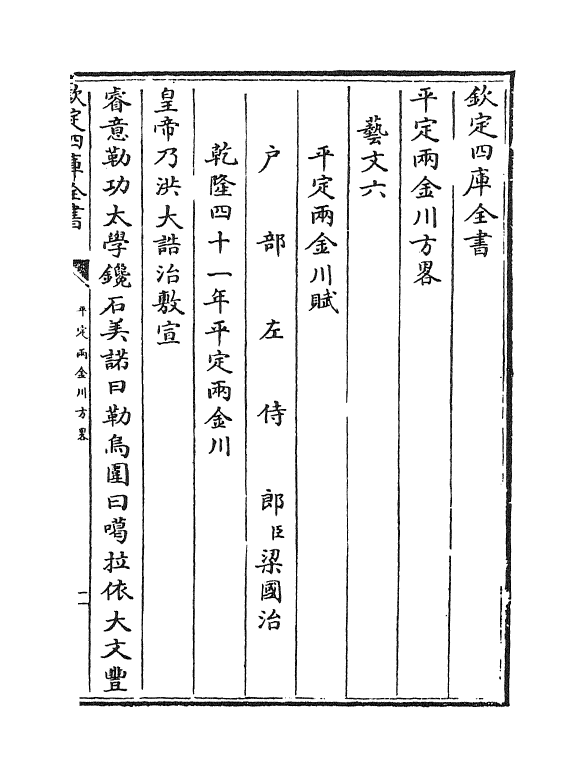 欽定四庫全書
平定兩金川方畧
藝文六
平定兩金川賦
户部左侍郎臣梁國治
乾隆四十一年平定兩金川
皇帝乃洪大誥治敷宣
睿意勒功太學鑱石美諾曰勒烏圍曰噶拉依大文豐
欽定四庫全書
平定兩金川方畧